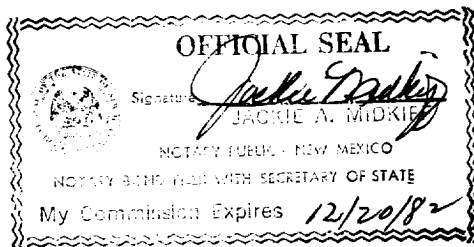 OFFICIAL SEAL
Signature Jackie Midkiff
JACKIE A. MIDKIFF
NOTARY PUBLIC - NEW MEXICO
NOTARY BOND FILED WITH SECRETARY OF STATE
My Commission Expires 12/20/82